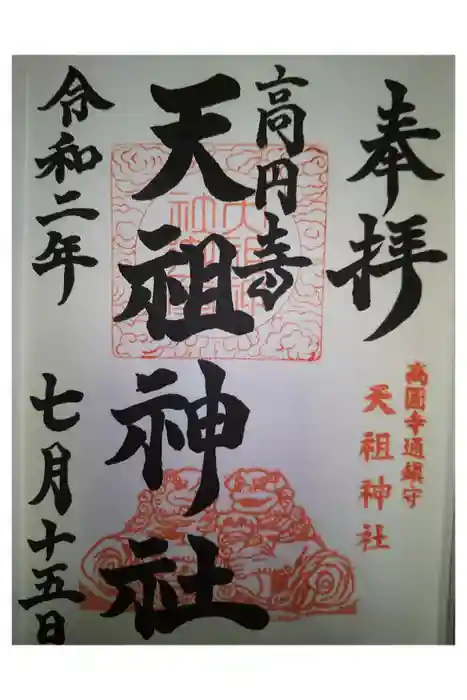 奉拝
高圓寺通鎮守
天祖神社
高円寺
天祖神社
令和二年
七月十五日
天祖神社